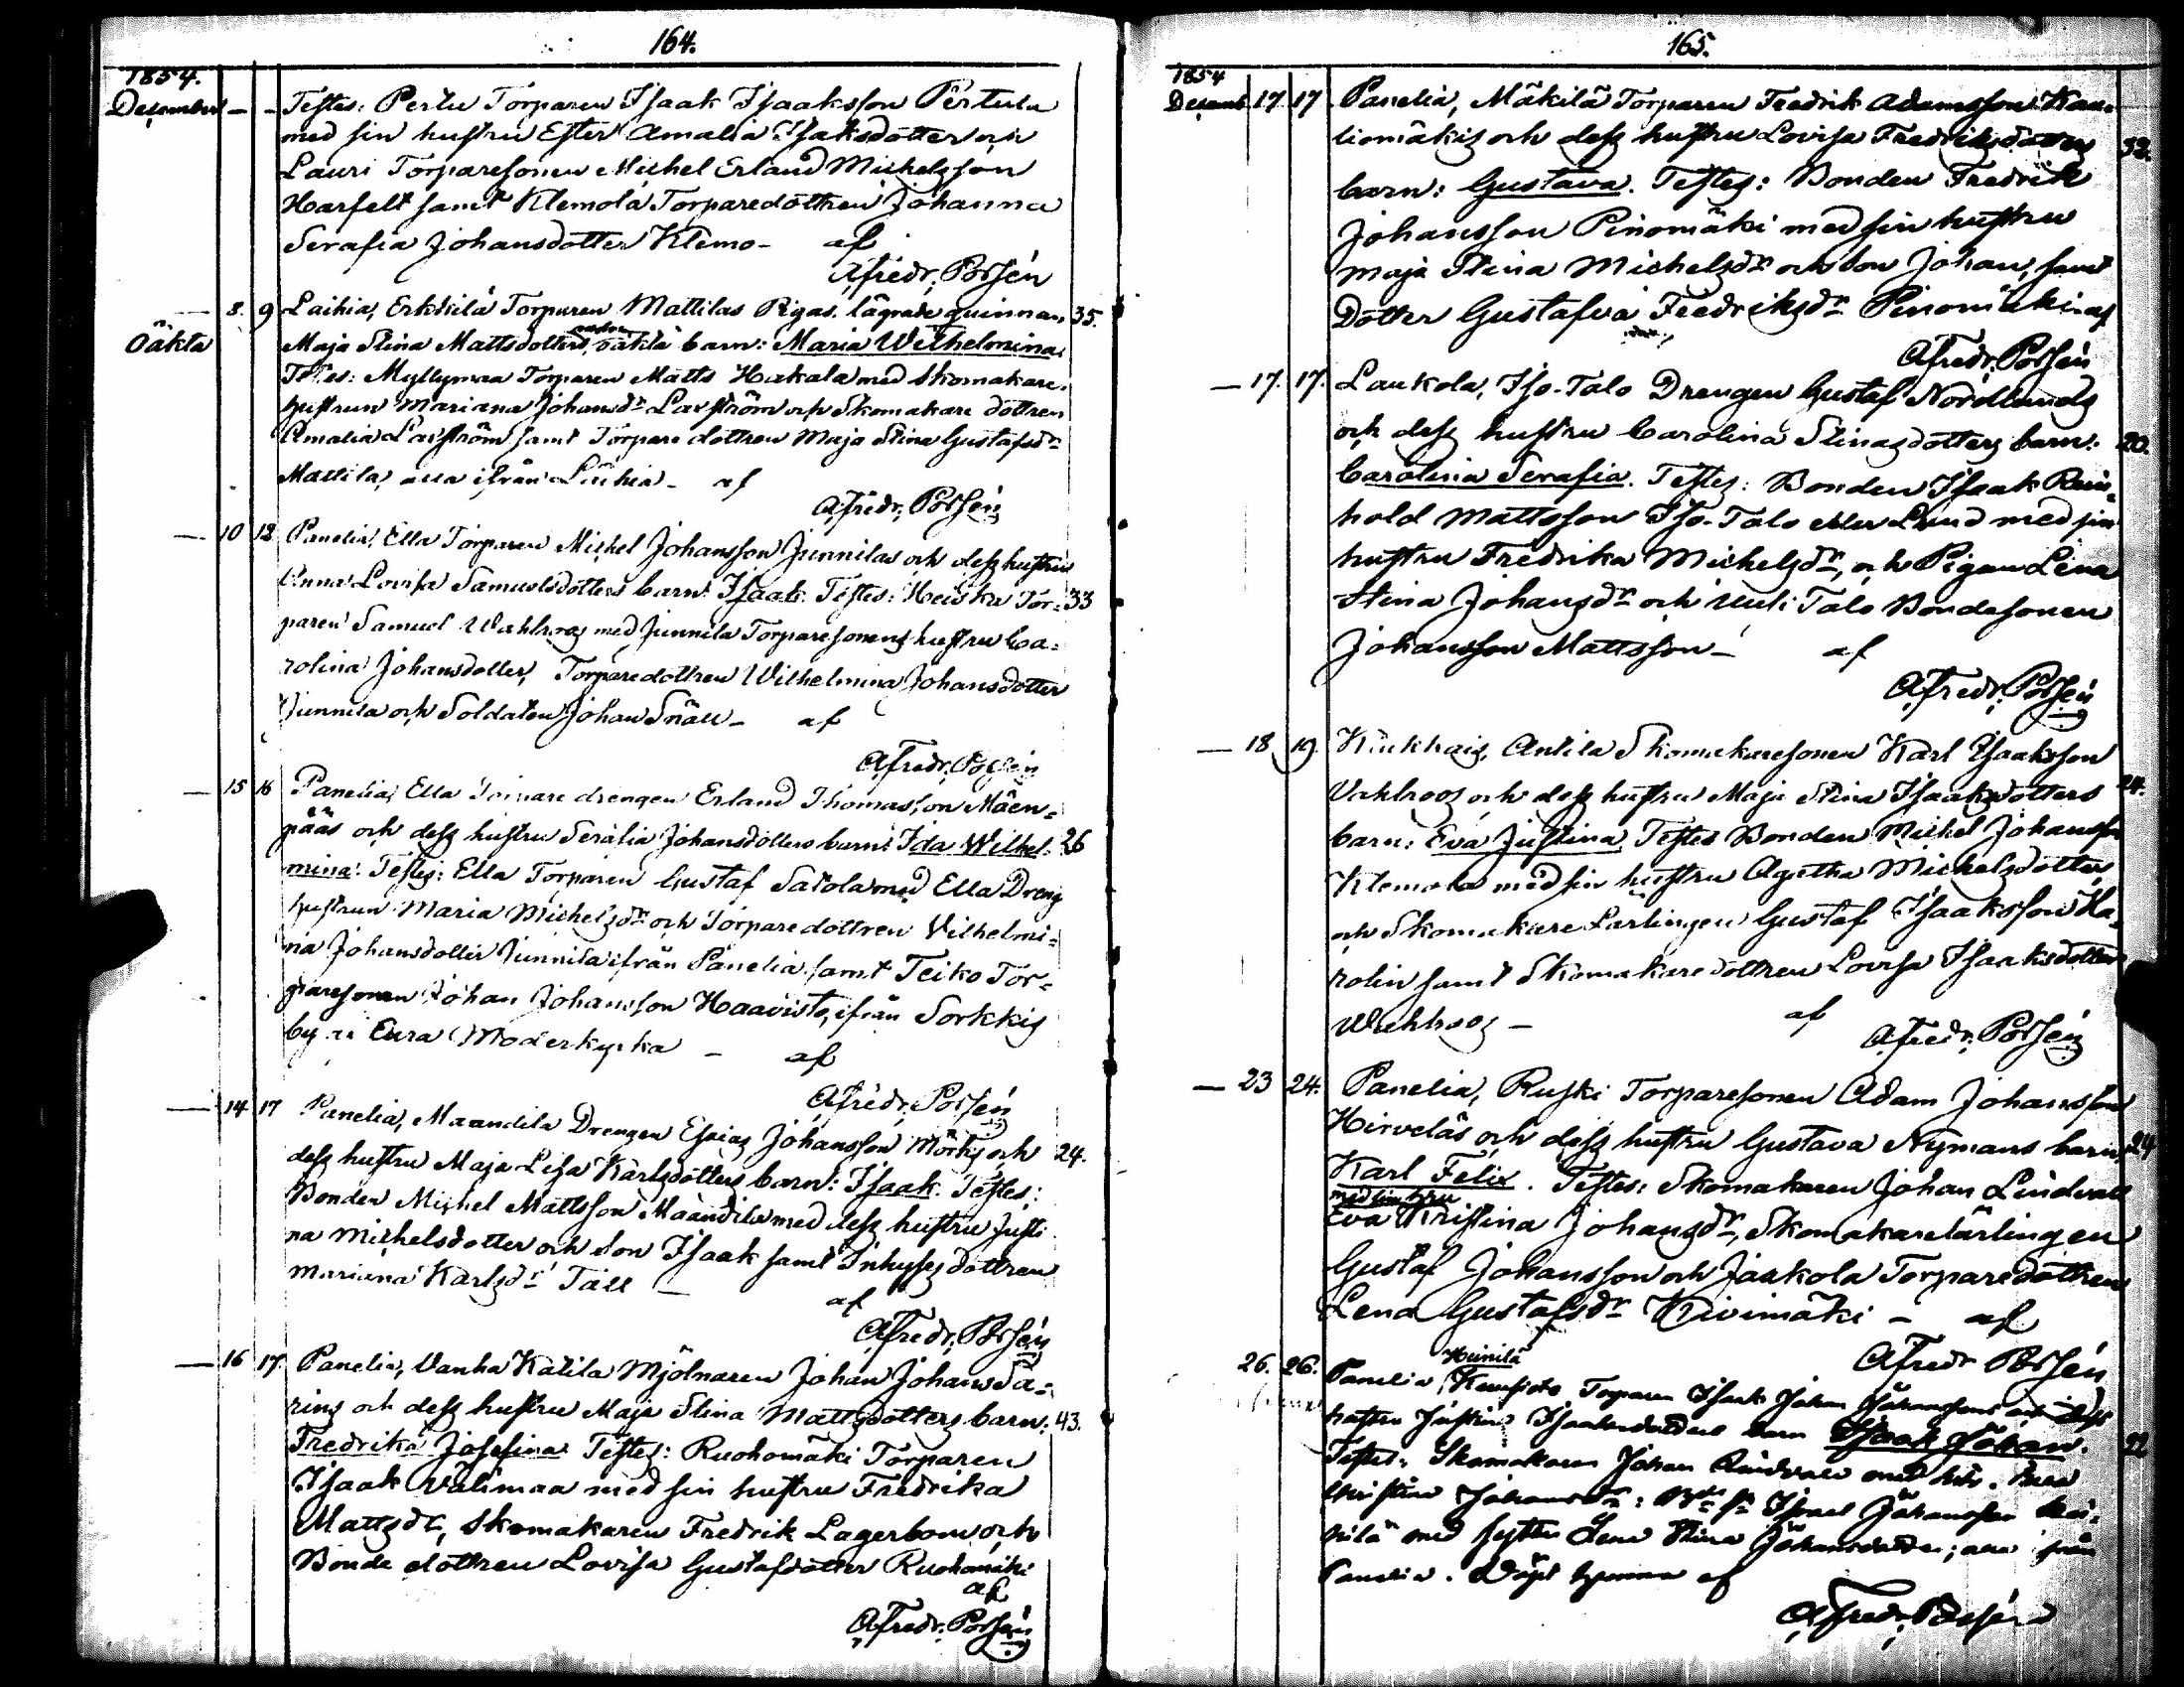 164.
1854.
December — — Testes: Pertu Torparen Isaak Isaaksson Pertula
med sin hustru Ester Amalia Isaksdotter och
Lauri Torparesonen Michel Erland Michelsson
Harfelt samt Klemola Torparedottren Johanna
Serafia Johansdotter Klemo — af
Afredr. Porsén
— 8. 9 Laihia, Erkkilä Torparen Mattilas Pigas lägrade quinnan 35.
Oäkta Maja Stina Mattsdotters, oäkta barn: Maria Wilhelmina.
Testes: Myllymaa Torparen Matts Hakala med Skomakare-
hustrun Mariana Johansdr Laxström och Skomakare dottren
Amalia Laxström samt Torpare dottren Maja Stina Gustafsdr
Mattila, alla ifrån Laihia — af
Afredr. Porsén
— 10 12 Panelia, Ella Torparen Michel Johansson Junnilas och dess hustru
Anna Lovisa Samuelsdotters barn: Isaak. Testes: Heiska Tor- 33
paren Samuel Wahlroos med Junnila Torparesonens hustru Ca-
rolina Johansdotter, Torparedottren Wilhelmina Johansdotter
Junnila och Soldaten Johan Snäll — af
Afredr. Porsén
— 15 16 Panelia, Ella Torpare drengen Erland Thomasson Mäen-
pääs och dess hustru Serafia Johansdotters barn: Ida Wilhel- 26
mina. Testes: Ella Torparen Gustaf Salola med Ella Dreng
hustrun Maria Michelsdr och Torpare dottren Vilhelmi-
na Johansdotter Junnila ifrån Panelia samt Teiko Tor-
paresonen Johan Johansson Haavisto, ifrån Sorkkis
by i Eura Moderkyrka — af
Afredr. Porsén
— 14 17 Panelia, Maandila Drengen Esaias Johansson Mörks och 24.
dess hustru Maja Lisa Karlsdotters barn: Isaak. Testes:
Bonden Michel Mattsson Maandila med dess hustru Justi-
na Michelsdotter och son Isaak samt Inhyses dottren
Mariana Karlsdr Tall — af
Afredr. Porsén
— 16 17. Panelia, Vanha Katila Mjölnaren Johan Johansson Sa-
rins och dess hustru Maja Stina Mattsdotters barn: 43.
Fredrika Josefina. Testes: Ruohomäki Torparen
Isaak Välimaa med sin hustru Fredrika
Mattsdr, Skomakaren Fredrik Lagerbom och
Bonde dottren Lovisa Gustafsdotter Ruohomäki
af
Afredr. Porsén
165.
1854
Decemb. 17 17 Panelia, Mäkilä Torparen Fredrik Adamsson Kan-
liomäkis och dess hustru Lovisa Fredriksdotters 32.
barn: Gustava. Testes: Bonden Fredrik
Johansson Pinomäki med sin hustru
Maja Stina Michelsdr och son Johan, samt
Dotter Gustafva Fredriksdr Pinomäki af
Afredr. Porsén
— 17. 17. Laukola, Iso-Talo Drengen Gustaf Nordlunds
och dess hustru Carolina Stinasdotters barn: 20.
Carolina Serafia. Testes: Bonden Isaak Rein-
hold Mattsson Iso-Talo eller Lund med sin
hustru Fredrika Michelsdr, och Pigan Lena
Stina Johansdr och Uusi Talo Bondesonen
Johansson Mattsson — af
Afredr. Porsén
— 18 19. Kiukhais, Antila Skomakaresonen Karl Isaaksson
Vahlroos och dess hustru Maja Stina Isaaksdotters 24.
barn: Eva Justina. Testes Bonden Michel Johansson
Klemola med sin hustru Agatha Michelsdotter
och Skomakare Lärlingen Gustaf Isaaksson Ka-
rolin samt Skomakare dottren Lovisa Isaaksdotter
Wahlroos — af
Afredr. Porsén
— 23 24. Panelia, Ruski Torparesonen Adam Johansson
Hirveläs och dess hustru Gustava Nymans barn: 24
Karl Felix. Testes: Skomakaren Johan Lindvall
med sin hru
Eva Kristina Johansdr, Skomakarelärlingen
Gustaf Johansson och Jaakola Torparedottren
Lena Gustafsdr Kivimäki — af
Afredr Porsén
Heinilä
26. 26. Panelia, Torparen Isaak Johan Johanssons och dess
hustru Justina Isaaksdotters barn Isaak Johan. 22
Testes: Skomakaren Johan Lindvall med hust. Eva
Christina Johansdr: Isaak Johansson Hei-
nilä med syster Lena Stina Johansdotter; alla från
Panelia. Döpt hemma af
Afredr. Porsén